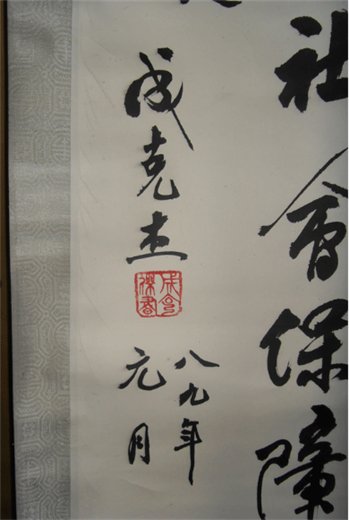 社会保障
成克杰
八九年
元月